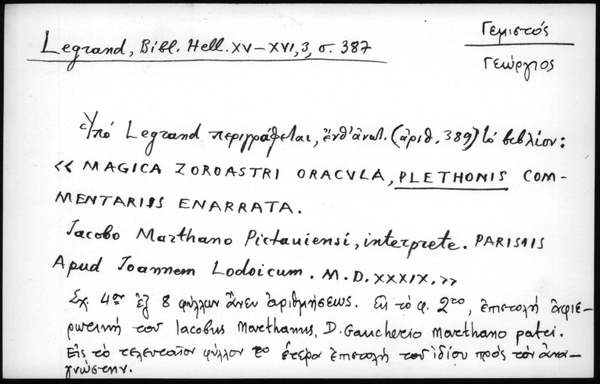 Legrand, Bibl. Hell. XV–XVI, 3, σ. 387
Γεμιστός
Γεώργιος
Ὑπό Legrand περιγράφεται, ἔνθ' ἀνωτ. (ἀριθ. 389) τό βιβλίον:
« MAGICA ZOROASTRI ORACVLA, PLETHONIS COM-
MENTARIIS ENARRATA.
Jacobo Marthano Pictauiensi, interprete. PARISIIS
Apud Joannem Lodoicum. M.D.XXXIX. »
Σχ. 4ον ἐξ 8 φύλλων ἄνευ ἀριθμήσεως. Εἰς τὸ φ. 2ον, ἐπιστολή ἀφιε-
ρωτική του Iacobus Marthanus, D. Gaucherio Marthano patri.
Εἰς τὸ τελευταῖον φύλλον το ἑτέρα ἐπιστολή τοῦ ἰδίου πρὸς τὸν ἀνα-
γνώστην.